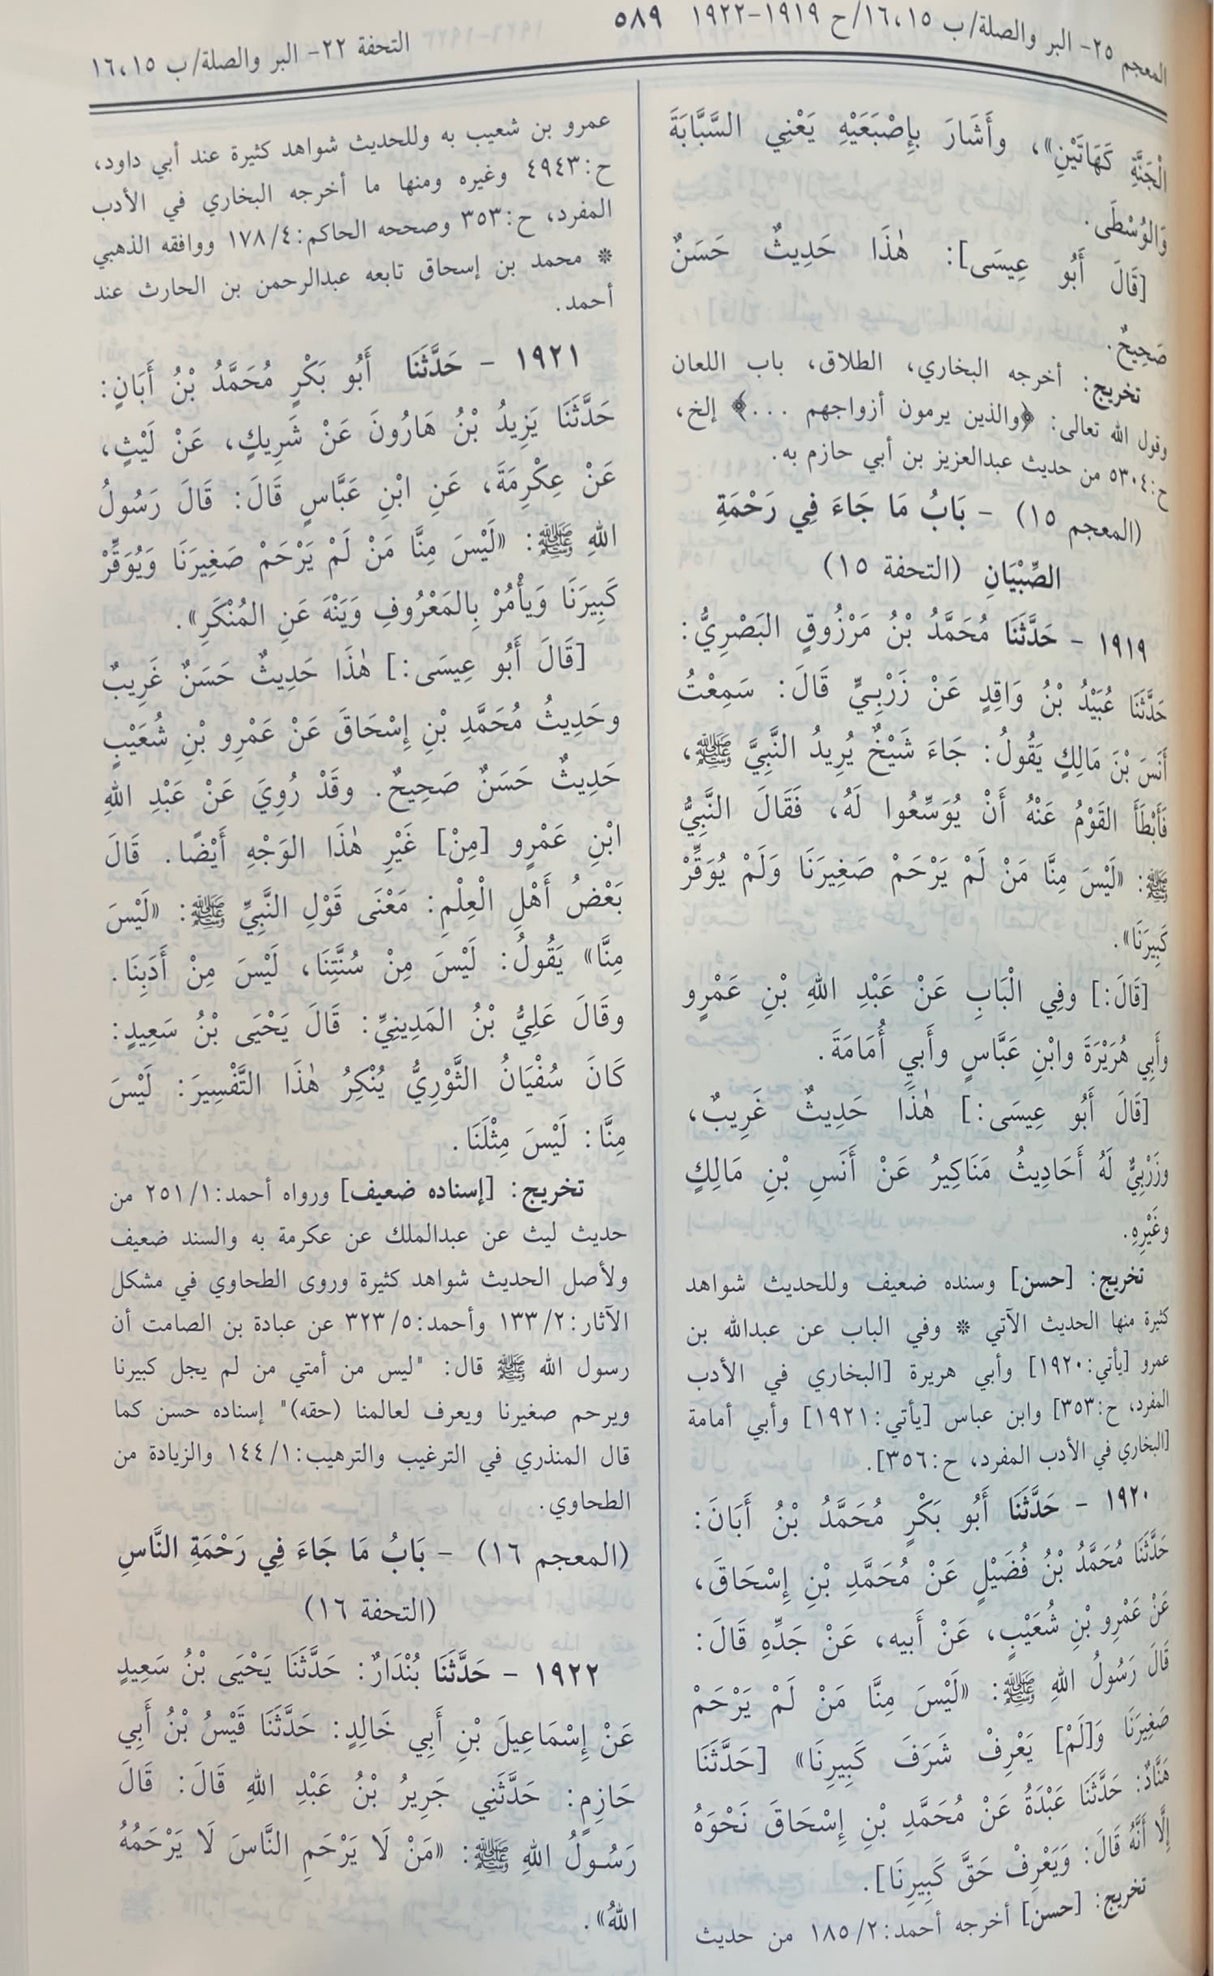 المعجم ٢٥- البر والصلة/ب ١٦،١٥/ح ١٩١٩-١٩٢٢
٥٨٩
التحفة ٢٢- البر والصلة/ب ١٦،١٥
الْجَنَّةِ كَهَاتَيْنِ»، وأَشَارَ بِإِصْبَعَيْهِ يَعْنِي السَّبَّابَةَ
وَالوُسْطَى.
[قَالَ أَبُو عِيسَى]: هٰذَا حَدِيثٌ حَسَنٌ
صَحِيحٌ.
تخريج: أخرجه البخاري، الطلاق، باب اللعان
وقول الله تعالى: ﴿والذين يرمون أزواجهم ...﴾ إلخ،
ح:٥٣٠٤ من حديث عبدالعزيز بن أبي حازم به.
(المعجم ١٥) - بَابُ مَا جَاءَ فِي رَحْمَةِ
الصِّبْيَانِ (التحفة ١٥)
١٩١٩ - حَدَّثَنَا مُحَمَّدُ بْنُ مَرْزُوقٍ البَصْرِيُّ:
حَدَّثَنَا عُبَيْدُ بْنُ وَاقِدٍ عَنْ زَرْبِيٍّ قَالَ: سَمِعْتُ
أَنَسَ بْنَ مَالِكٍ يَقُولُ: جَاءَ شَيْخٌ يُرِيدُ النَّبِيَّ ﷺ،
فَأَبْطَأَ القَوْمُ عَنْهُ أَنْ يُوَسِّعُوا لَهُ، فَقَالَ النَّبِيُّ
ﷺ: «لَيْسَ مِنَّا مَنْ لَمْ يَرْحَمْ صَغِيرَنَا وَلَمْ يُوَقِّرْ
كَبِيرَنَا».
[قَالَ:] وفِي الْبَابِ عَنْ عَبْدِ اللهِ بْنِ عَمْرٍو
وأَبِي هُرَيْرَةَ وابْنِ عَبَّاسٍ وأَبِي أُمَامَةَ.
[قَالَ أَبُو عِيسَى:] هٰذَا حَدِيثٌ غَرِيبٌ،
وزَرْبِيٌّ لَهُ أَحَادِيثُ مَنَاكِيرُ عَنْ أَنَسِ بْنِ مَالِكٍ
وغَيْرِهِ.
تخريج: [حسن] وسنده ضعيف وللحديث شواهد
كثيرة منها الحديث الآتي * وفي الباب عن عبدالله بن
عمرو [يأتي:١٩٢٠] وأبي هريرة [البخاري في الأدب
المفرد، ح:٣٥٣] وابن عباس [يأتي:١٩٢١] وأبي أمامة
[البخاري في الأدب المفرد، ح:٣٥٦].
١٩٢٠ - حَدَّثَنَا أَبُو بَكْرٍ مُحَمَّدُ بْنُ أَبَانَ:
حَدَّثَنَا مُحَمَّدُ بْنُ فُضَيْلٍ عَنْ مُحَمَّدِ بْنِ إِسْحَاقَ،
عَنْ عَمْرِو بْنِ شُعَيْبٍ، عَنْ أَبيه، عَنْ جَدِّهِ قَالَ:
قَالَ رَسُولُ اللهِ ﷺ: «لَيْسَ مِنَّا مَنْ لَمْ يَرْحَمْ
صَغِيرَنَا وَ[لَمْ] يَعْرِفْ شَرَفَ كَبِيرِنَا» [حَدَّثَنَا
هَنَّادٌ: حَدَّثَنَا عَبْدَةُ عَنْ مُحَمَّدِ بْنِ إِسْحَاقَ نَحْوَهُ
إِلَّا أَنَّهُ قَالَ: وَيَعْرِفْ حَقَّ كَبِيرِنَا].
تخريج: [حسن] أخرجه أحمد:٢/ ١٨٥ من حديث
عمرو بن شعيب به وللحديث شواهد كثيرة عند أبي داود،
ح:٤٩٤٣ وغيره ومنها ما أخرجه البخاري في الأدب
المفرد، ح:٣٥٣ وصححه الحاكم:٤/ ١٧٨ ووافقه الذهبي
* محمد بن إسحاق تابعه عبدالرحمن بن الحارث عند
أحمد.
١٩٢١ - حَدَّثَنَا أَبُو بَكْرٍ مُحَمَّدُ بْنُ أَبَانٍ:
حَدَّثَنَا يَزِيدُ بْنُ هَارُونَ عَنْ شَرِيكٍ، عَنْ لَيْثٍ،
عَنْ عِكْرِمَةَ، عَنِ ابْنِ عَبَّاسٍ قَالَ: قَالَ رَسُولُ
اللهِ ﷺ: «لَيْسَ مِنَّا مَنْ لَمْ يَرْحَمْ صَغِيرَنَا وَيُوَقِّرْ
كَبِيرَنَا وَيأْمُرْ بِالمَعْرُوفِ وَيَنْهَ عَنِ المُنْكَرِ».
[قَالَ أَبُو عِيسَى:] هٰذَا حَدِيثٌ حَسَنٌ غَرِيبٌ
وحَدِيثُ مُحَمَّدِ بْنِ إِسْحَاقَ عَنْ عَمْرِو بْنِ شُعَيْبٍ
حَدِيثٌ حَسَنٌ صَحِيحٌ. وقَدْ رُوِيَ عَنْ عَبْدِ اللهِ
ابْنِ عَمْرٍو [مِنْ] غَيْرِ هٰذَا الوَجْهِ أَيْضًا. قَالَ
بَعْضُ أَهْلِ الْعِلْمِ: مَعْنَى قَوْلِ النَّبِيِّ ﷺ: «لَيْسَ
مِنَّا» يَقُولُ: لَيْسَ مِنْ سُنَّتِنَا، لَيْسَ مِنْ أَدَبِنَا.
وقَالَ عَلِيُّ بْنُ المَدِينِيِّ: قَالَ يَحْيَى بْنُ سَعِيدٍ:
كَانَ سُفْيَانُ الثَّوْرِيُّ يُنْكِرُ هٰذَا التَّفْسِيرَ: لَيْسَ
مِنَّا: لَيْسَ مِثْلَنَا.
تخريج: [إسناده ضعيف] ورواه أحمد:١/ ٢٥١ من
حديث ليث عن عبدالملك عن عكرمة به والسند ضعيف
ولأصل الحديث شواهد كثيرة وروى الطحاوي في مشكل
الآثار:٢/ ١٣٣ وأحمد:٥/ ٣٢٣ عن عبادة بن الصامت أن
رسول الله ﷺ قال: "ليس من أمتي من لم يجل كبيرنا
ويرحم صغيرنا ويعرف لعالمنا (حقه)" إسناده حسن كما
قال المنذري في الترغيب والترهيب:١/ ١٤٤ والزيادة من
الطحاوي.
(المعجم ١٦) - بَابُ مَا جَاءَ فِي رَحْمَةِ النَّاسِ
(التحفة ١٦)
١٩٢٢ - حَدَّثَنَا بُنْدَارٌ: حَدَّثَنَا يَحْيَى بْنُ سَعِيدٍ
عَنْ إِسْمَاعِيلَ بْنِ أَبِي خَالِدٍ: حَدَّثَنَا قَيْسُ بْنُ أَبِي
حَازِمٍ: حَدَّثَنِي جَرِيرُ بْنُ عَبْدِ اللهِ قَالَ: قَالَ
رَسُولُ اللهِ ﷺ: «مَنْ لَا يَرْحَمِ النَّاسَ لَا يَرْحَمُهُ
اللهُ».